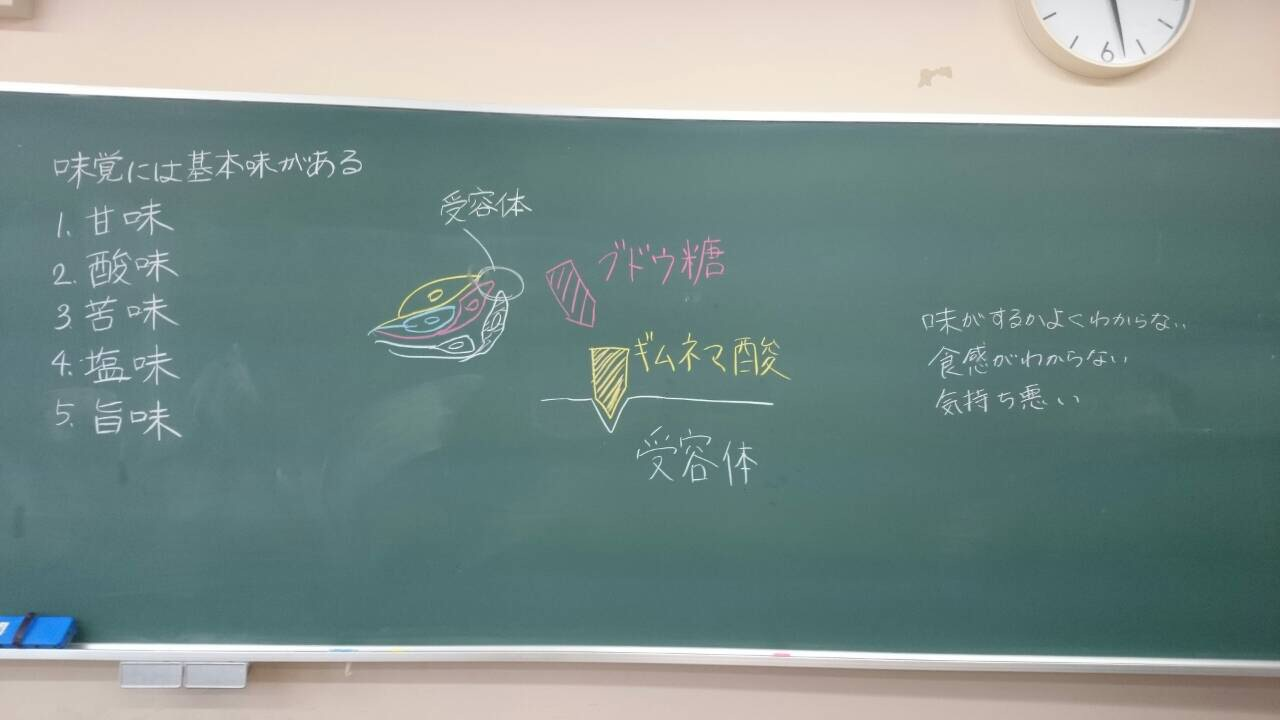 味覚には基本味がある
1. 甘味
2. 酸味
3. 苦味
4. 塩味
5. 旨味
受容体
ブドウ糖
ギムネマ酸
受容体
味がするかよくわからない
食感がわからない
気持ち悪い
6